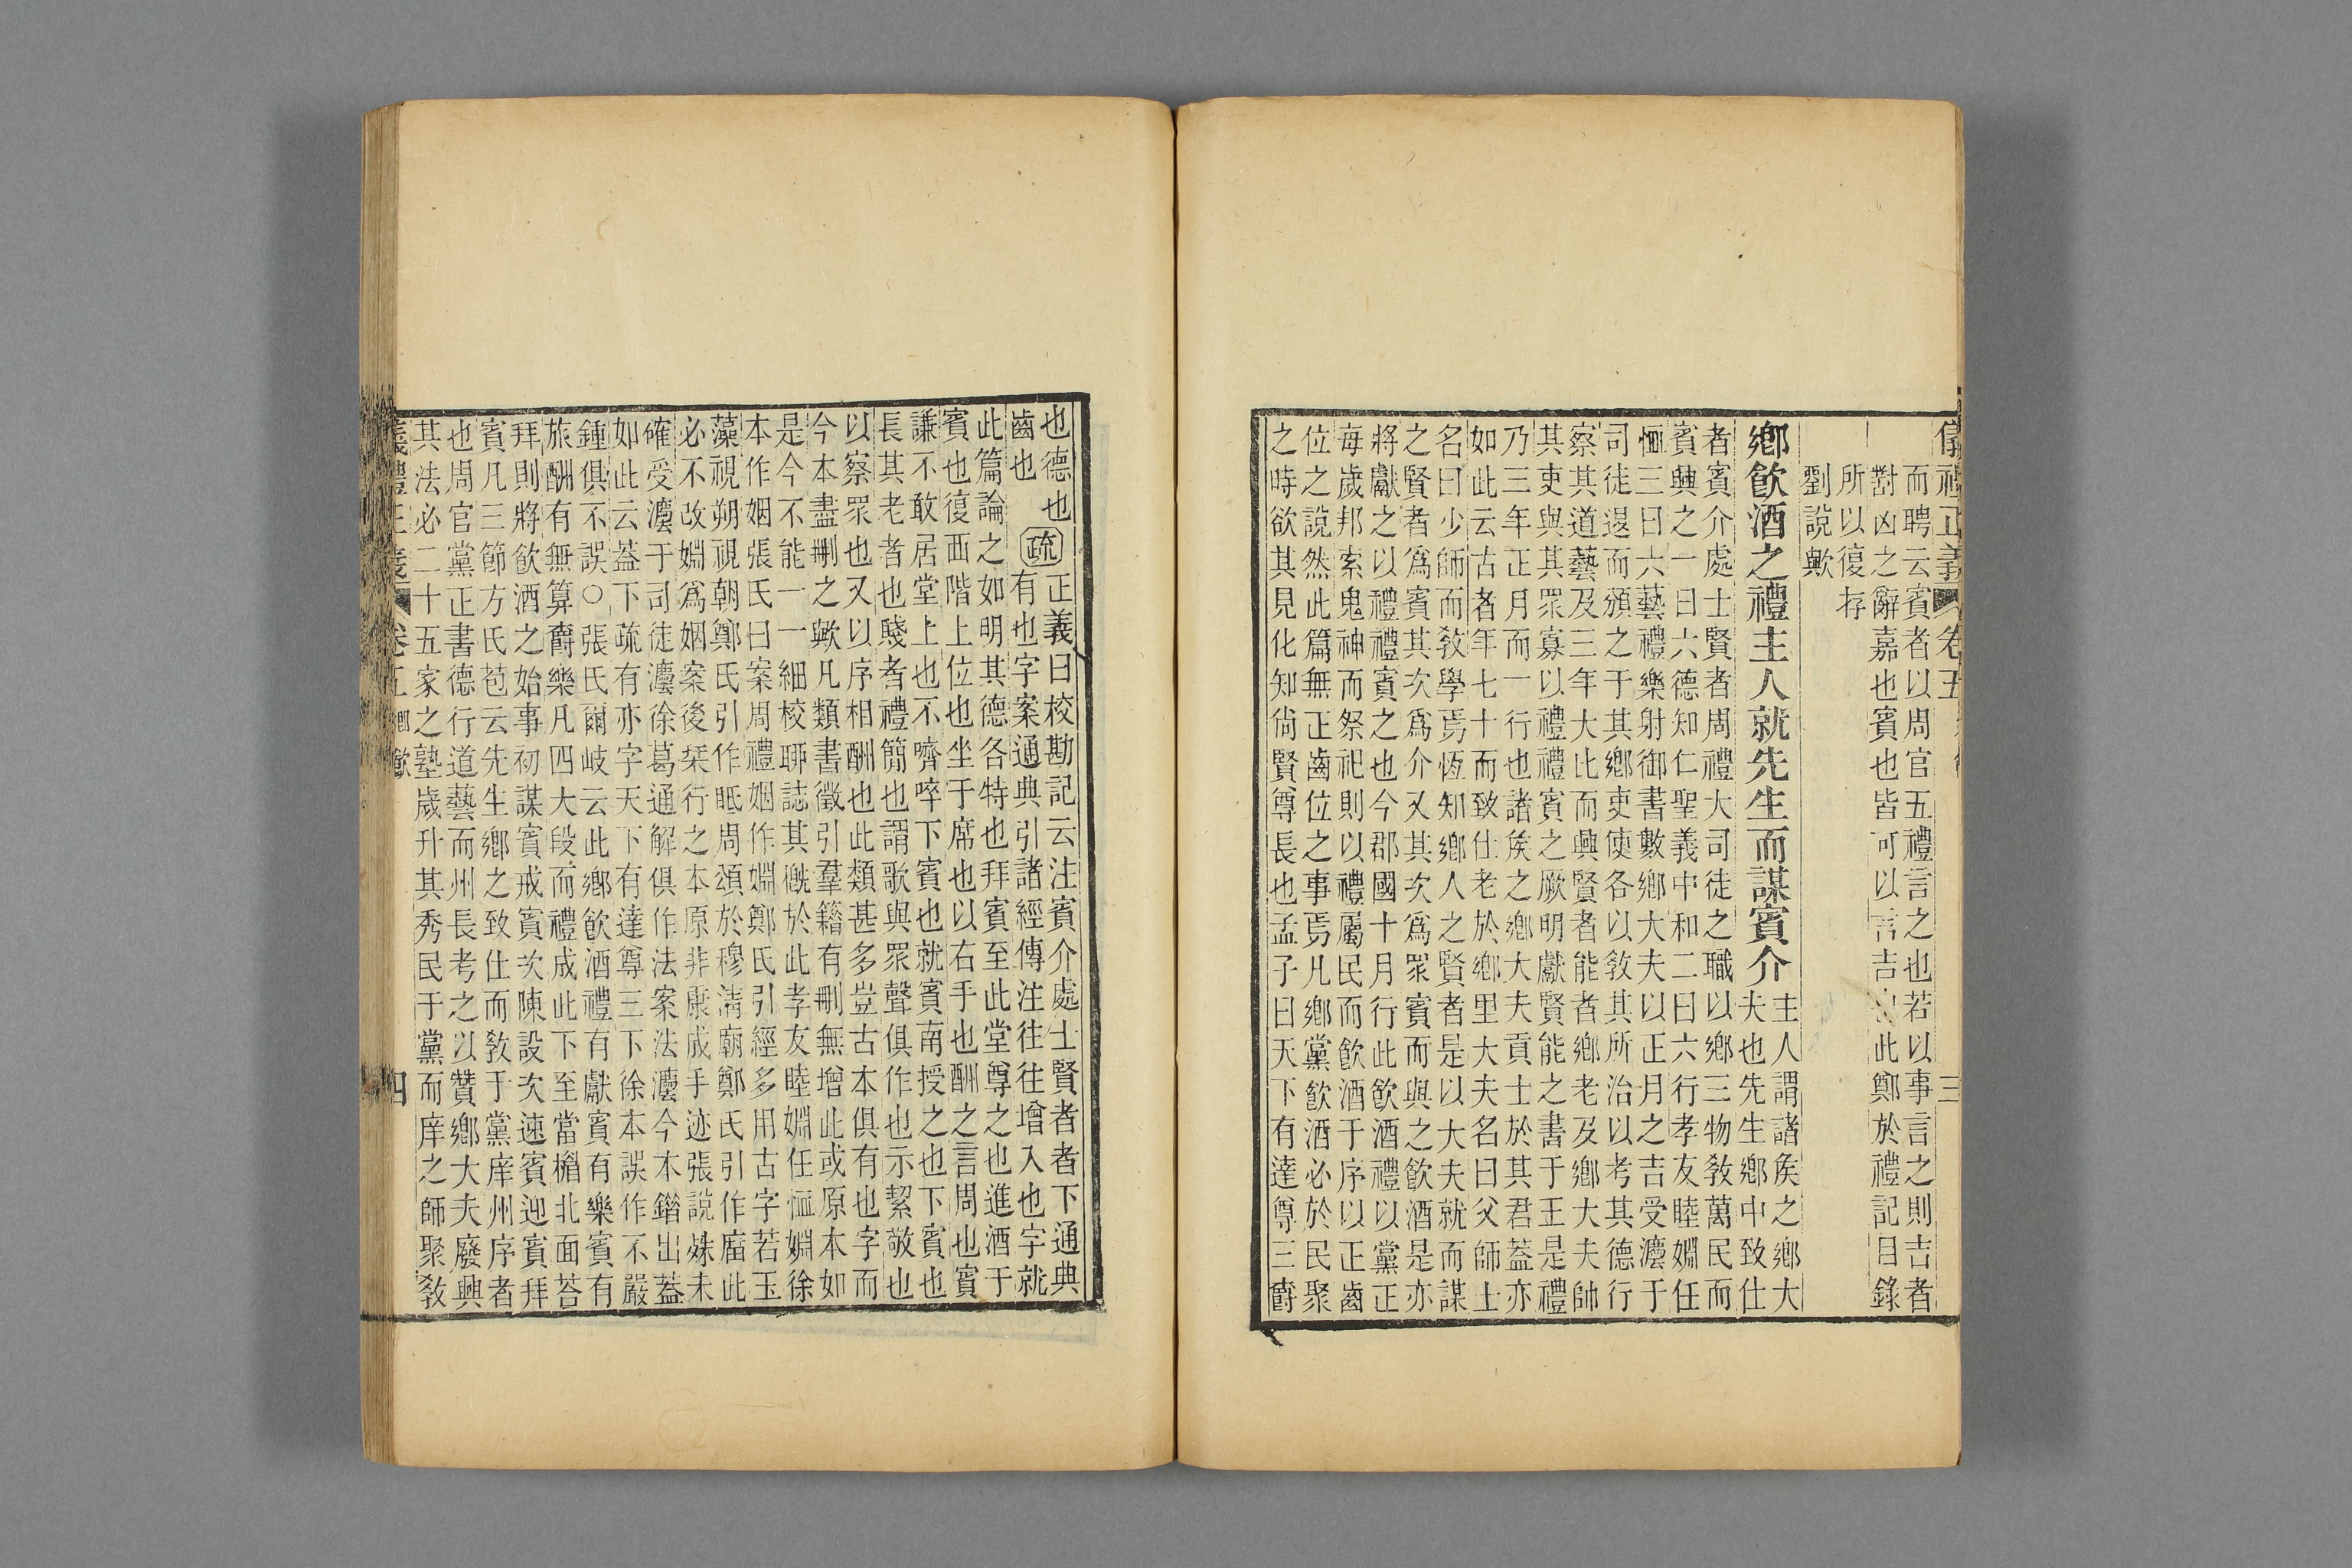 儀禮正義 卷五 三
而聘云賓者以周官五禮言之也若以事言之則吉者
對凶之辭嘉也賓也皆可以言吉也此鄭於禮記目錄
所以復存
劉說歟
鄉飲酒之禮主人就先生而謀賓介
主人謂諸矦之鄉大
夫也先生鄉中致仕
者賓介處士賢者周禮大司徒之職以鄉三物敎萬民而
賓興之一曰六德知仁聖義中和二曰六行孝友睦婣任
恤三曰六藝禮樂射御書數鄉大夫以正月之吉受灋于
司徒退而頒之于其鄉吏使各以敎其所治以考其德行
察其道藝及三年大比而興賢者能者鄉老及鄉大夫帥
其吏與其眾寡以禮禮賓之厥明獻賢能之書于王是禮
乃三年正月而一行也諸矦之鄉大夫貢士於其君蓋亦
如此云古者年七十而致仕老於鄉里大夫名曰父師士
名曰少師而敎學焉恆知鄉人之賢者是以大夫就而謀
之賢者爲賓其次爲介又其次爲眾賓而與之飲酒是亦
將獻之以禮禮賓之也今郡國十月行此飲酒禮以黨正
每歲邦索鬼神而祭祀則以禮屬民而飲酒于序以正齒
位之說然此篇無正齒位之事焉凡鄉黨飲酒必於民聚
之時欲其見化知尙賢尊長也孟子曰天下有達尊三爵
也德也
齒也
疏
正義曰校勘記云注賓介處士賢者者下通典
有也字案通典引諸經傳注往往增入也字就
此篇論之如明其德各特也拜賓至此堂尊之也進酒于
賓也復西階上位也坐于席也以右手也酬之言周也賓
謙不敢居堂上也不嚌啐下賓也就賓南授之也下賓也
長其老者也賤者禮簡也謂歌與眾聲俱作也示絜敬也
以察眾也又以序相酬也此類甚多豈古本俱有也字而
今本盡刪之歟凡類書徵引羣籍有刪無增此或原本如
是今不能一一細校聊誌其槪於此孝友睦婣任恤婣徐
本作姻張氏曰案周禮姻作婣鄭氏引經多用古字若玉
藻視朔視朝鄭氏引作眡周頌於穆淸廟鄭氏引作庿此
必不改婣爲姻案後栞行之本原非康成手迹張說殊未
確受灋于司徒灋徐葛通解俱作法案法灋今本錯出蓋
如此云蓋下疏有亦字天下有達尊三下徐本誤作不嚴
鍾俱不誤○張氏爾岐云此鄉飲酒禮有獻賓有樂賓有
旅酬有無算爵樂凡四大段而禮成此下至當楣北面荅
拜則將飲酒之始事初謀賓戒賓次陳設次速賓迎賓拜
賓凡三節方氏苞云先生鄉之致仕而敎于黨庠州序者
也周官黨正書德行道藝而州長考之以贊鄉大夫廢興
其法必二十五家之塾歲升其秀民于黨而庠之師聚敎
義禮正義 卷五 鄉飲 四